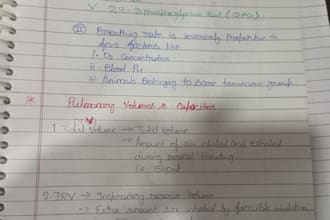 V 2,3- Diphosphoglyceric acid (DPGA)
(II) Breathing rate is inversely Proportion to
few factors like
i- O₂ Concentration
ii. Blood PH
iii. Animals Belonging to Same taxonomic group
* Pulmonary Volumes & Capacities
(V)
1. Tidal Volume → Tidal Volume
→ Amount of air inhaled and exhaled
during normal breathing
i.e. 500ml
2. IRV → Inspiratory reserve Volume
→ Extra amount air inhaled by forcible